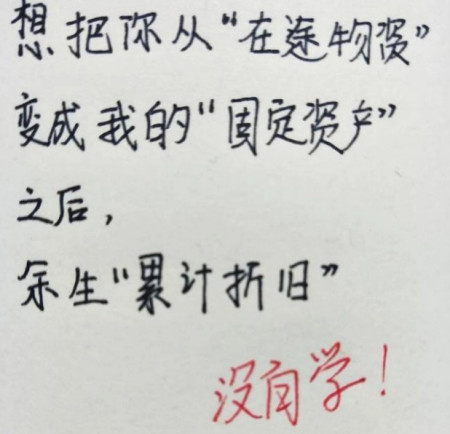 想把你从“在途物资”
变成我的“固定资产”
之后，
余生“累计折旧”
没白学！